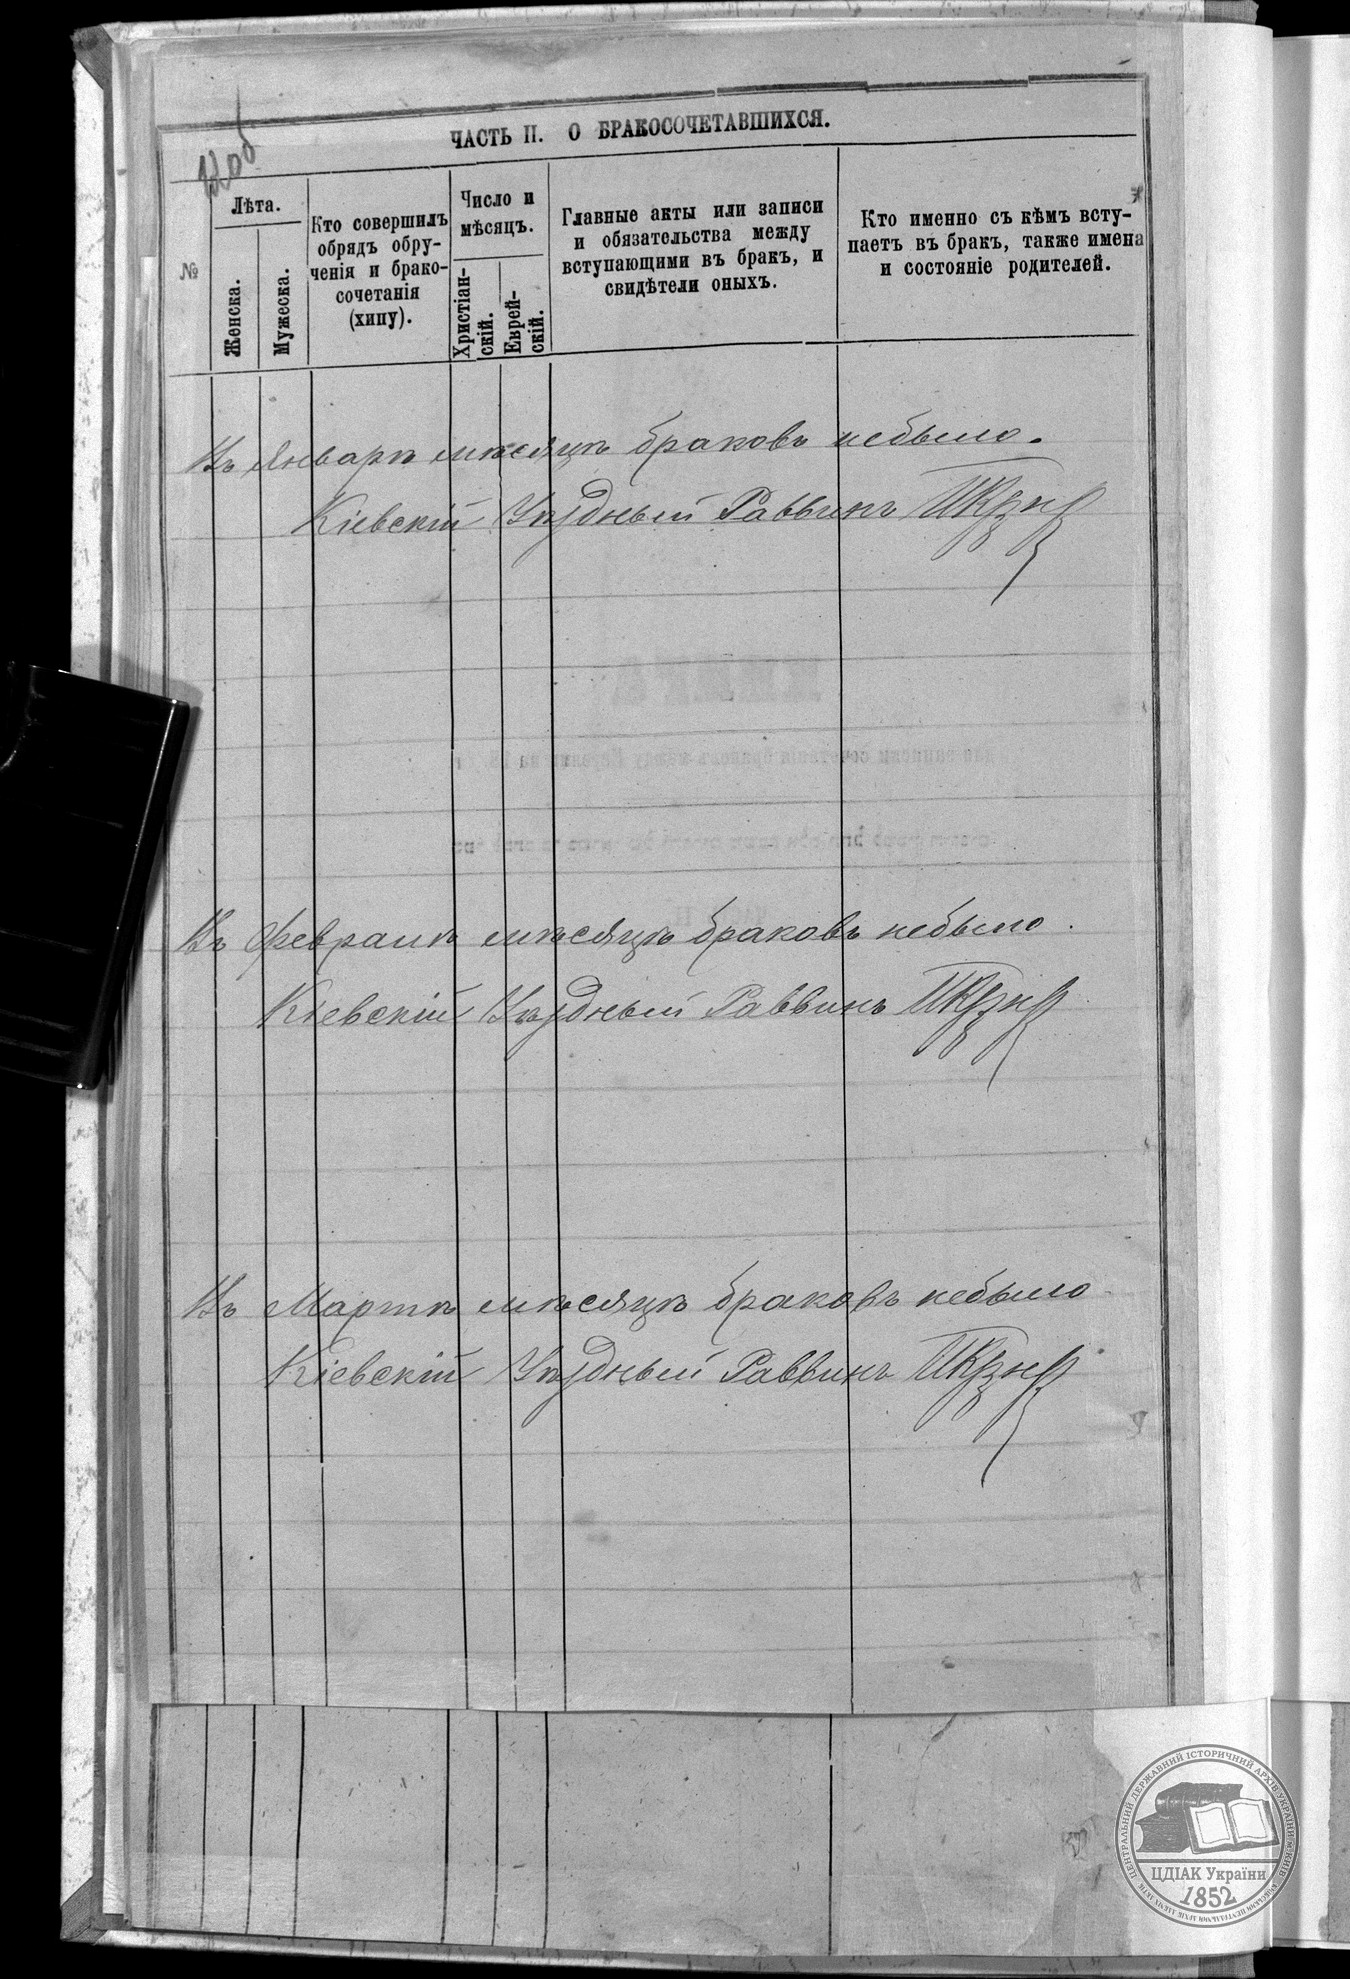 120об
ЧАСТЬ II. О БРАКОСОЧЕТАВШИХСЯ.
№
Лѣта.
Женска.
Мужеска.
Кто совершилъ
обрядъ обру-
ченія и брако-
сочетанія
(хипу).
Число и
мѣсяцъ.
Христіан-
скій.
Еврей-
скій.
Главные акты или записи
и обязательства между
вступающими въ бракъ, и
свидѣтели оныхъ.
Кто именно съ кѣмъ всту-
паетъ въ бракъ, также имена
и состояніе родителей.
Въ Январѣ мѣсяцѣ браковъ небыло.
Кіевскій Уѣздный Раввинъ
Въ Февралѣ мѣсяцѣ браковъ небыло.
Кіевскій Уѣздный Раввинъ
Въ Мартѣ мѣсяцѣ браковъ небыло
Кіевскій Уѣздный Раввинъ
ЦЕНТРАЛЬНИЙ ДЕРЖАВНИЙ ІСТОРИЧНИЙ АРХІВ УКРАЇНИ М.КИЇВ
ЦДІАК України
1852